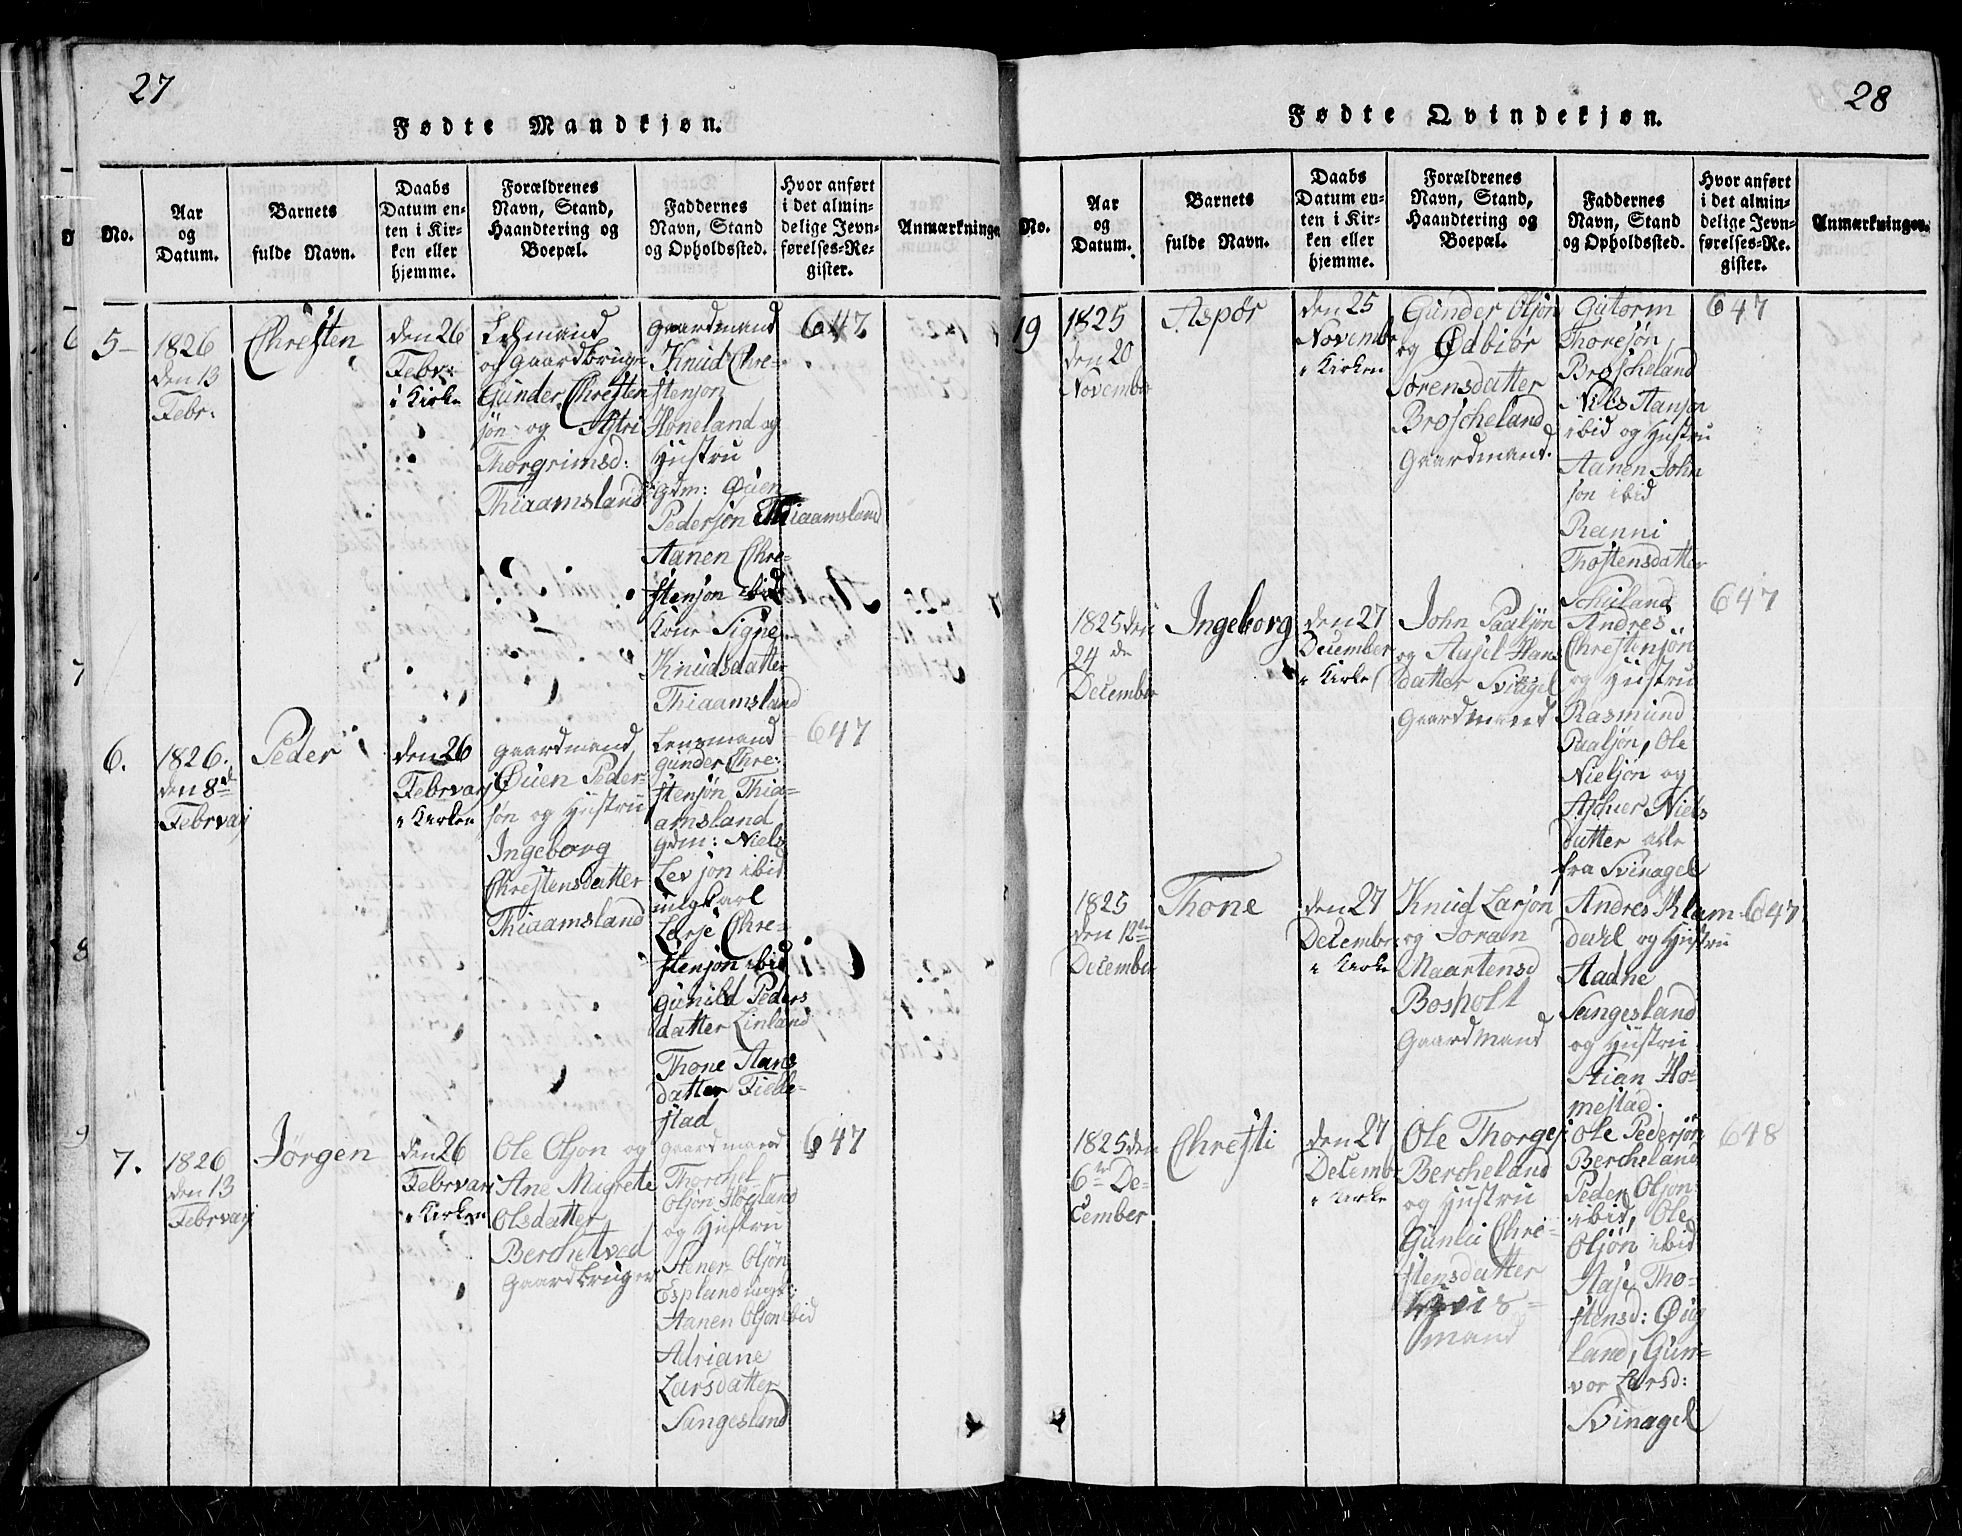 27
Fødte Mandkjøn.
No.
Aar
og
Datum.
Barnets
fulde Navn.
Daabs
Datum en-
ten i Kir-
ken eller
hjemme.
Forældrenes
Navn, Stand,
Haandtering og
Boepæl.
Faddernes
Navn, Stand
og Opholdssted.
Hvor anført
i det almin-
delige Jevn-
førelses-Re-
gister.
Anmærkninger
5
1826
den 13
Febr:
Chresten
den 26
Febr:
i Kirke
og gaardbruger
Gunder Chresten
søn og Astri
Thorgrimsd:
Thiaamsland
gaardmand
Knud Chre-
stensøn
Honeland og
Hustru
gdm: Øuen
Pedersøn Thiaamsland
Aanen Chre-
stensøn ibid
kone Signe
Knudsdatter
Thiaamsland
647
6.
1826.
den 8de
Febrvarj
Peder
den 26
Febrvarj
i Kirken
gaardmand
Øuen Peder-
søn og Hustru
Ingeborg
Chrestensdatter
Thiaamsland
Lensmand
gunder Chre-
stensøn Thia-
amsland
gdm: Niels
Levsøn ibid
ungkarl
Larje Chre-
stensøn ibid
Gunild Peders
datter Linland
Thone Aans
datter Fidde-
stad
647
7.
1826
den 13
Febrvarj
Jörgen
den 26
Febrvari
i Kirken
Ole Olson og
Ane Magrete
Olsdatter
Berchetved
Gaardbruger
gaardmand
Thorchel
Olsön Högland
og Hustru
Stener Olsön
Espland ungk:
Aanen Olson ibid
Adriane
Larsdatter
Sangesland
647
28
Fødte Qvindekjøn.
No.
Aar
og
Datum.
Barnets
fulde Navn.
Daabs
Datum en-
ten i Kir-
ken eller
hjemme.
Forældrenes
Navn, Stand,
Haandtering og
Boepæl.
Faddernes
Navn, Stand
og Opholdssted.
Hvor anført
i det almin-
delige Jevn-
førelses-Re-
gister.
Anmærkninger.
19
1825
den 20
November
Aspör
den 25
Novembr
i Kirken
Gunder Olsön
og Ødbiör
Sörensdatter
Broscheland
Gaardmand.
Gutorm
Thoresøn
Broscheland
Nils Aanson
ibid og Hustru
Aanen John
son ibid
Ranni
Thostensdatter
647
1825 den
24 de
December
Ingeborg
den 27
December
i Kirke
John Paalson
og Aasil Hans
datter Svinagel
Gaardmand
Andres
Chrestensön
og Hustru
Rasmund
Paalsön, Ole
Nielsön og
Ascher Niels
datter alle
fra Svinagel
647
1825
den 12te
December
Thone
den 27
December
i Kirke
Knud Larson
og Joran
Maartensd
Bosholt
Gaardmand
Andres Klam-
dahl og Hustru
Aadne
Sangesland
og Hustru
Stian Ho-
mestad.
647
1825 den
6te De-
cember
Chresti
den 27
Decemb
i Kirke
Ole Thorges
Bercheland
og Hustru
Gunlu Chre-
stensdatter
mand
Ole Pedersön
Bercheland
Peder Olson
ibid, Ole
Olsön ibid
Aase Tho-
stensd: Øig
land, Gun-
vor Larsd:
Svinagel
648